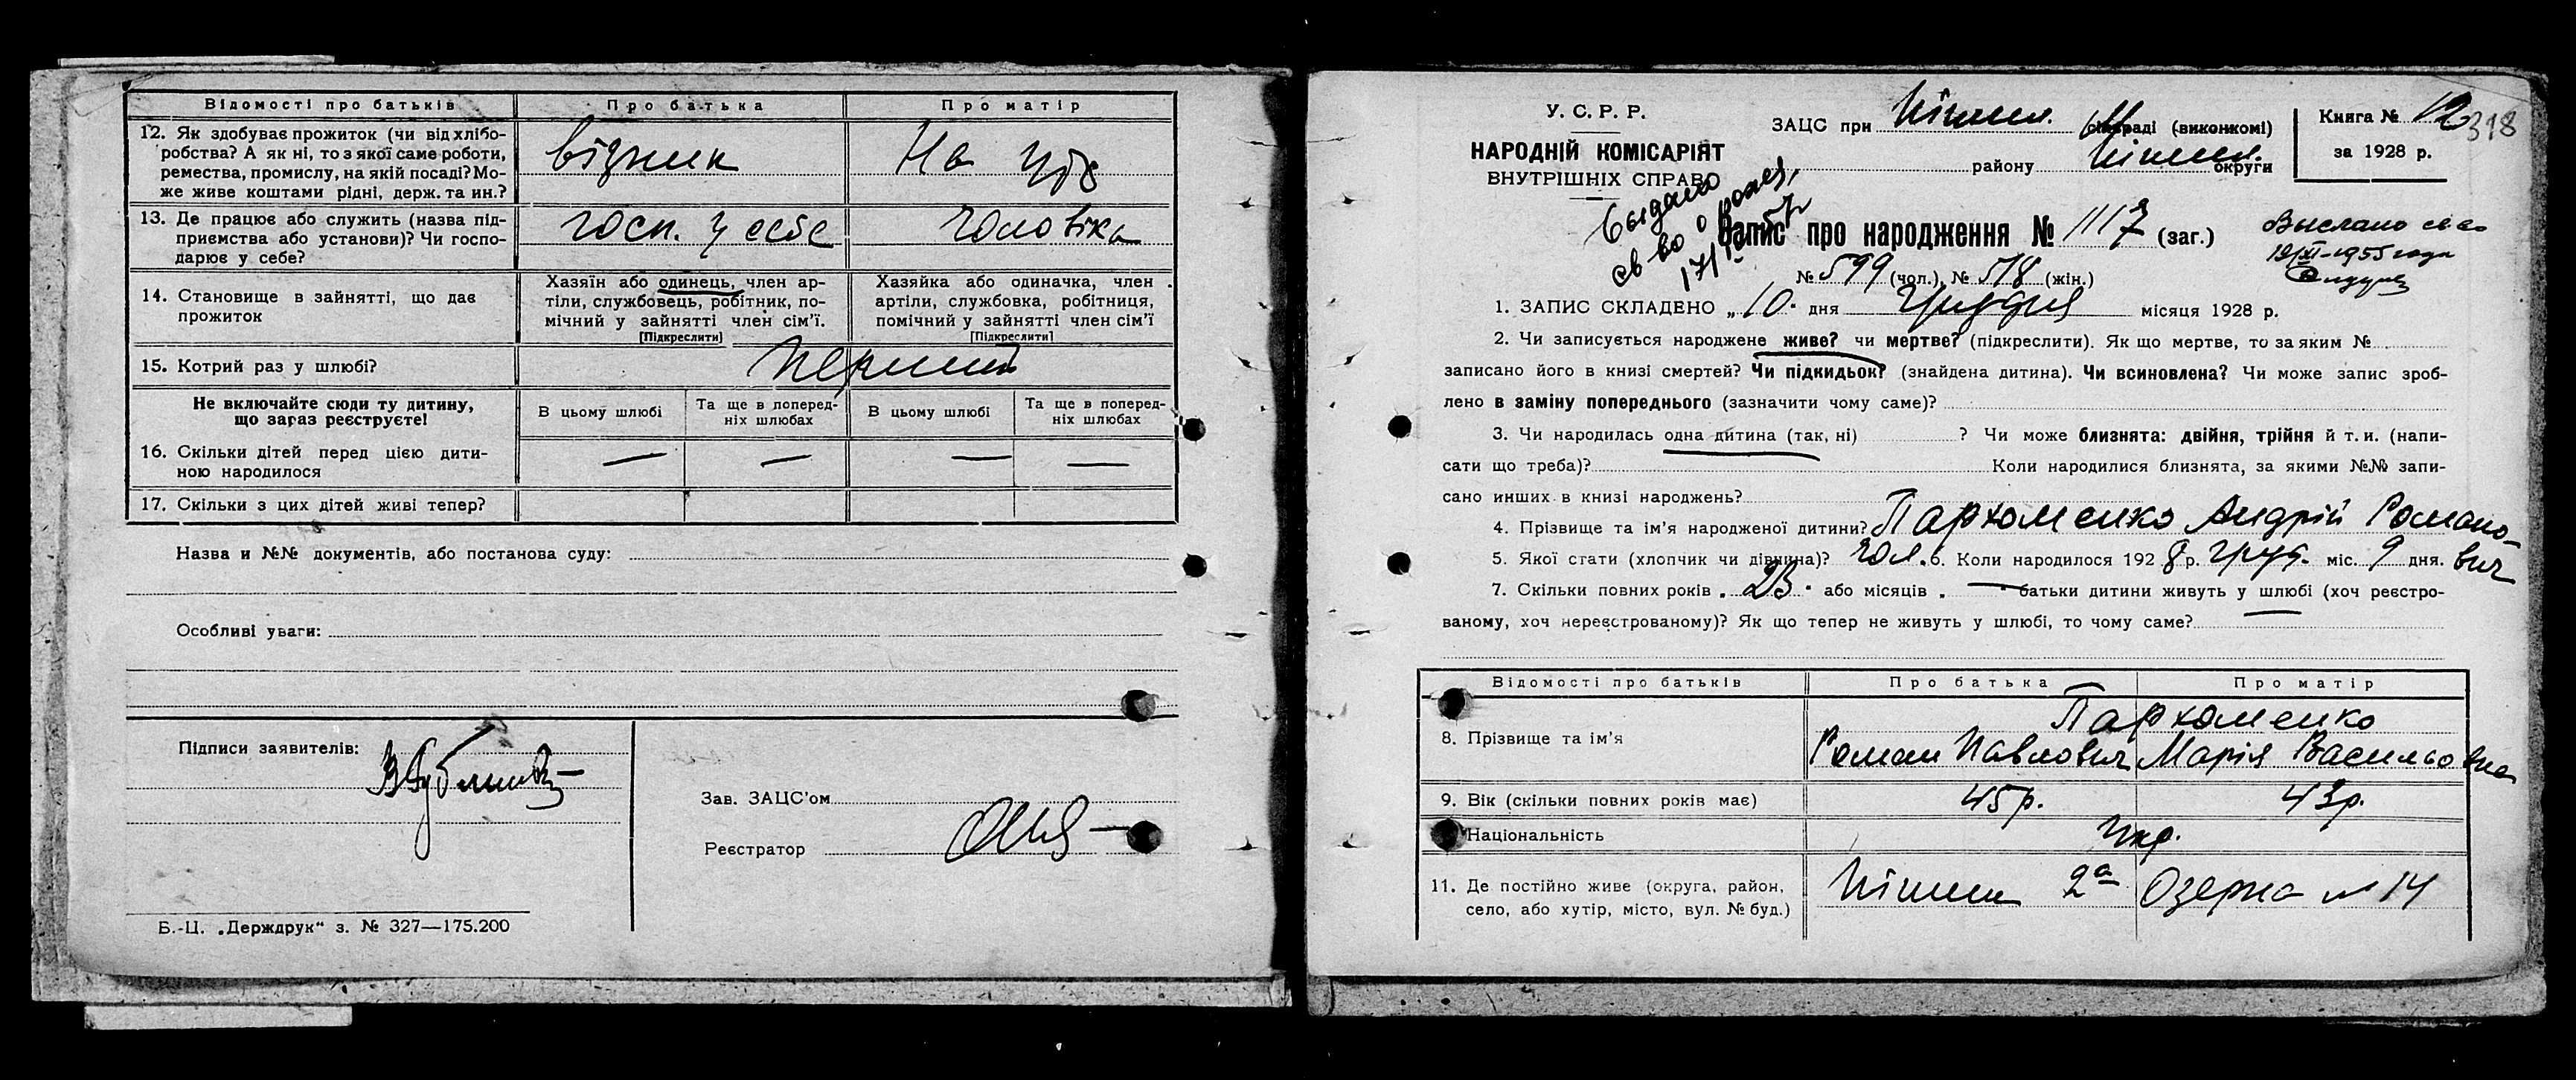 Відомості про батьків
Про батька
Про матір
12. Як здобуває прожиток (чи від хлібо-
робства? А як ні, то з якої саме роботи,
ремества, промислу, на якій посаді? Мо-
же живе коштами рідні, держ. та ин.?
візник
На утр
13. Де працює або служить (назва під-
приємства або установи)? Чи госпо-
дарює у себе?
госп. у себе
чоловіка
14. Становище в зайнятті, що дає
прожиток
Хазяїн або одинець, член ар-
тіли, службовець, робітник, по-
мічний у зайнятті член сім'ї.
[Підкреслити]
Хазяйка або одиначка, член
артіли, службовка, робітниця,
помічний у зайнятті член сім'ї
[Підкреслити]
15. Котрий раз у шлюбі?
перший
Не включайте сюди ту дитину,
що зараз реєструєте!
В цьому шлюбі
Та ще в поперед-
ніх шлюбах
В цьому шлюбі
Та ще в поперед-
ніх шлюбах
16. Скільки дітей перед цією дити-
ною народилося
— — — —
17. Скільки з цих дітей живі тепер?
Назва и №№ документів, або постанова суду:
Особливі уваги:
Підписи заявителів:
Зав. ЗАЦС'ом
Реєстратор
Б.-Ц. „Держдрук“ з. № 327—175.200
У. С. Р. Р.
НАРОДНІЙ КОМІСАРІЯТ
ВНУТРІШНІХ СПРАВ
ЗАЦС при сільраді (виконкомі)
району округи
Книга № 12
за 1928 р.
318
Выдано
св во о рожд.
Запис про народження № 1117 (заг.)
Выслано св во
1955 года
№ 599 (чол.), № 518 (жін.)
1. ЗАПИС СКЛАДЕНО „10 дня грудня місяця 1928 р.
2. Чи записується народжене живе? чи мертве? (підкреслити). Як що мертве, то за яким №
записано його в книзі смертей? Чи підкидьок? (знайдена дитина). Чи всиновлена? Чи може запис зроб-
лено в заміну попереднього (зазначити чому саме)?
3. Чи народилась одна дитина (так, ні) ? Чи може близнята: двійня, трійня й т. и. (напи-
сати що треба)? Коли народилися близнята, за якими №№ запи-
сано инших в книзі народжень?
4. Прізвище та ім'я народженої дитини? Пархоменко Андрій Романо-
вич
5. Якої стати (хлопчик чи дівчина)? чол. 6. Коли народилося 1928 р. груд. міс. 9 дня.
7. Скільки повних років 23 або місяців — батьки дитини живуть у шлюбі (хоч реєстро-
ваному, хоч нереєстрованому)? Як що тепер не живуть у шлюбі, то чому саме?
Відомості про батьків
Про батька
Про матір
8. Прізвище та ім'я
Пархоменко
Роман Павлович
Марія Васильовна
9. Вік (скільки повних років має)
45 р.
43 р.
Національність
Укр.
11. Де постійно живе (округа, район,
село, або хутір, місто, вул. № буд.)
2а Озерна № 14